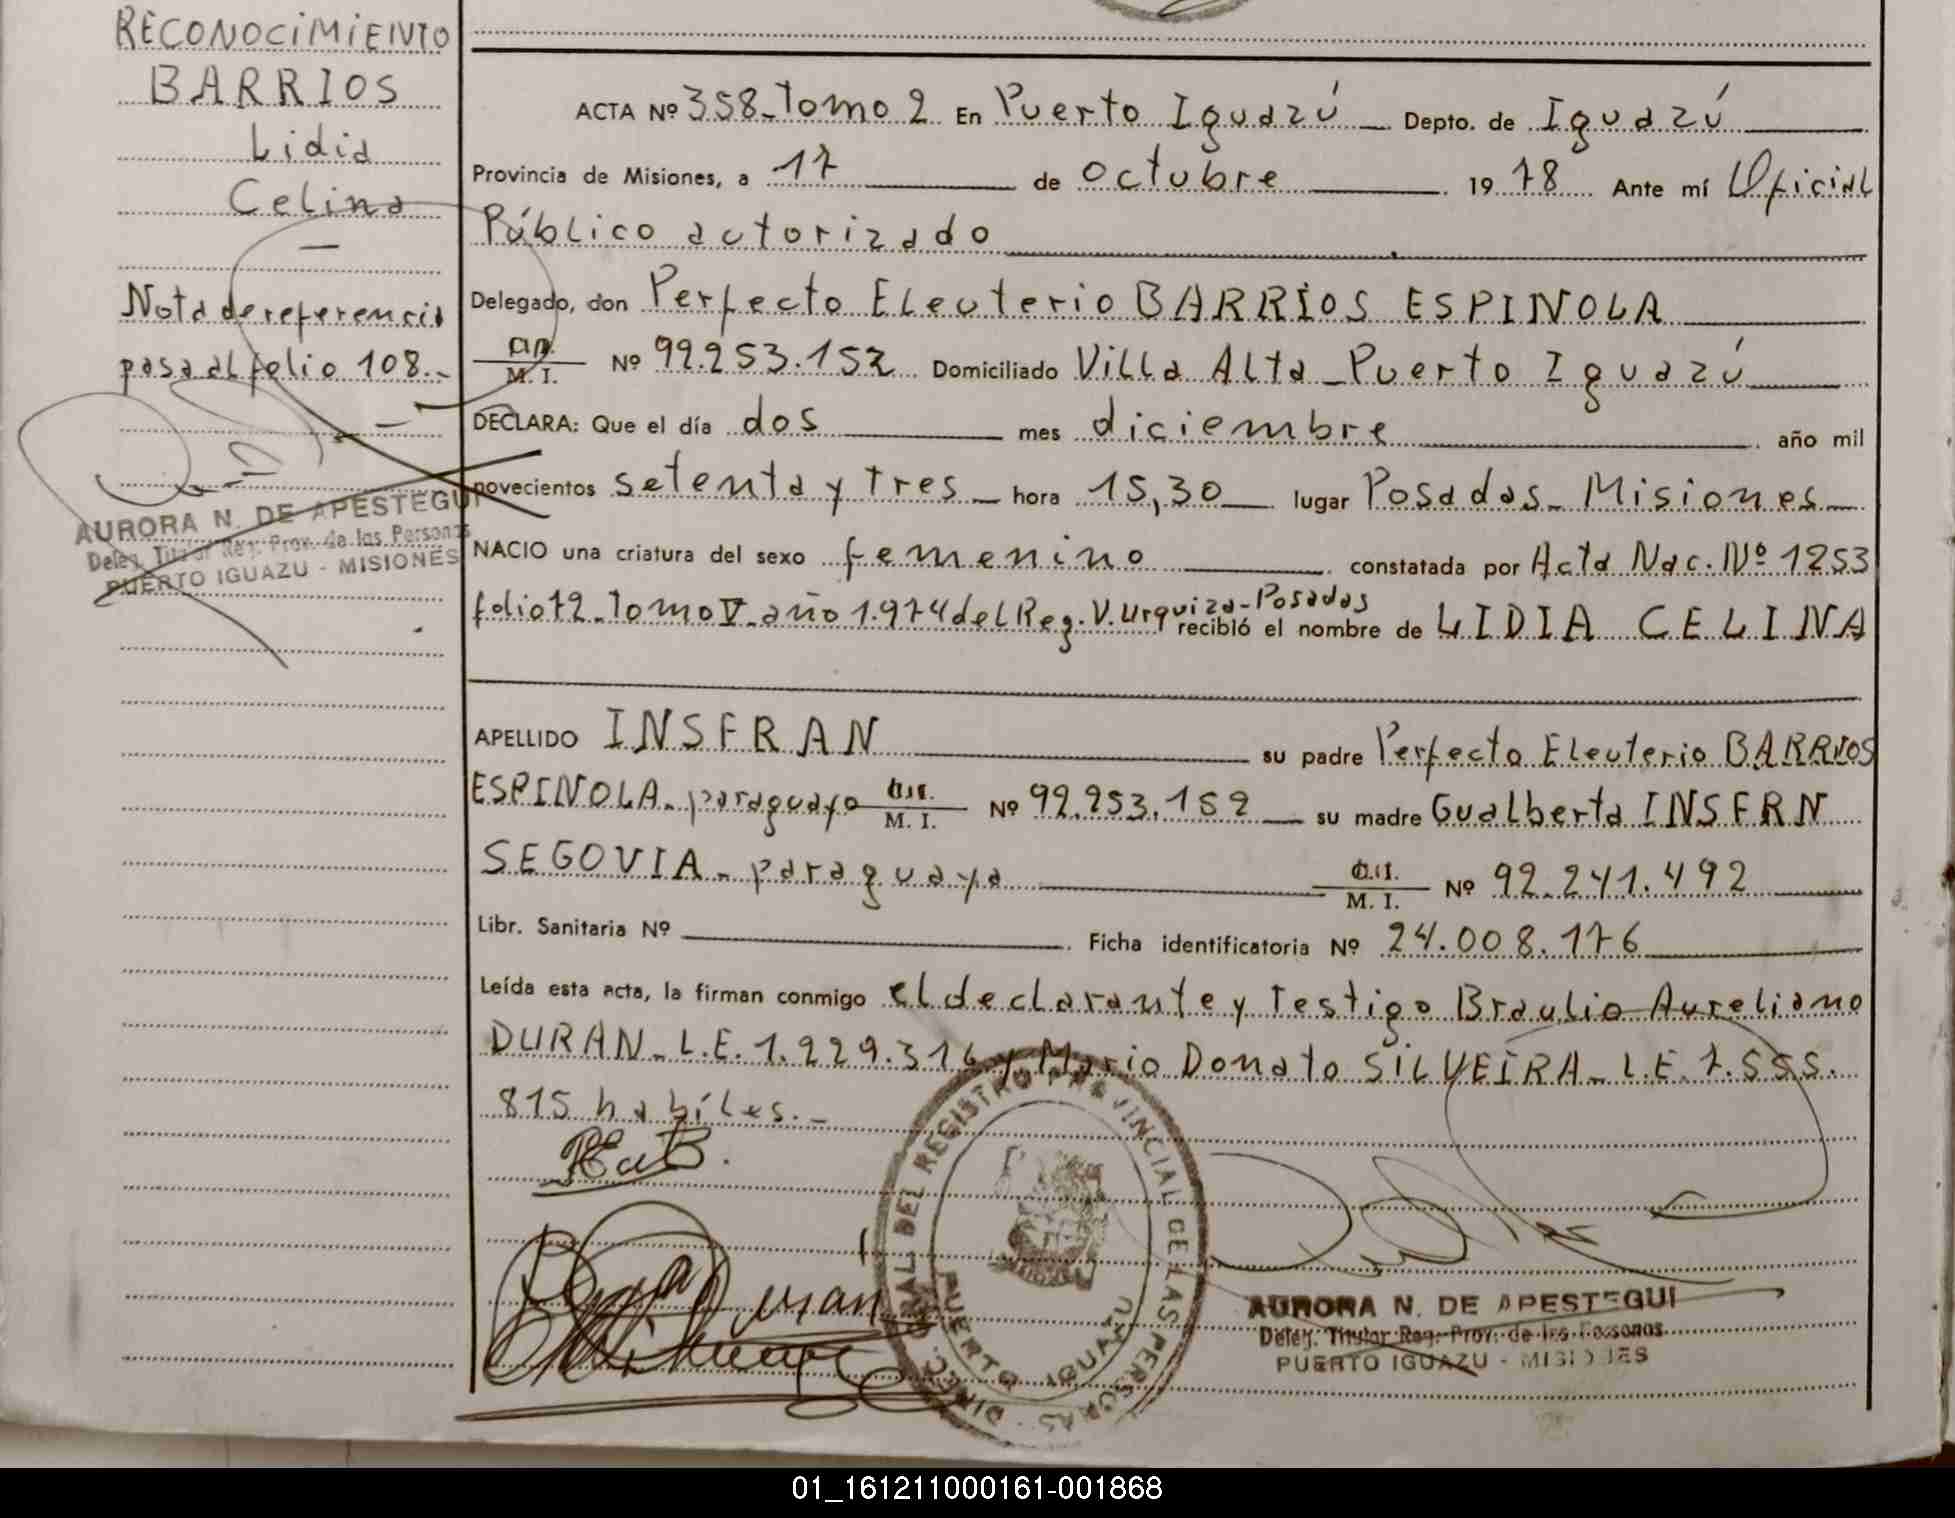 RECONOCIMIENTO
BARRIOS
Lidia
Celina
Nota de referencia
pasa al folio 108.-
AURORA N. DE APESTEGUI
Deleg. Titular Reg. Prov. de las Personas
PUERTO IGUAZU - MISIONES
ACTA Nº 358-Tomo 2 En Puerto Iguazú Depto. de Iguazú
Provincia de Misiones, a 17 de octubre 19 78 Ante mí Oficial
Público autorizado
Delegado, don Perfecto Eleuterio BARRIOS ESPINOLA
M. I. Nº 92.253.152 Domiciliado Villa Alta - Puerto Iguazú
DECLARA: Que el día dos mes diciembre año mil
novecientos setenta y tres - hora 15,30 lugar Posadas - Misiones
NACIO una criatura del sexo femenino constatada por Acta Nac. Nº 1253
folio 72 - Tomo V - año 1.974 del Reg. V. Urquiza - Posadas recibió el nombre de LIDIA CELINA
APELLIDO INSFRAN su padre Perfecto Eleuterio BARRIOS
ESPINOLA - paraguayo M. I. Nº 92.253.152 su madre Gualberta INSFRN
SEGOVIA - paraguaya M. I. Nº 92.241.492
Libr. Sanitaria Nº Ficha identificatoria Nº 24.008.176
Leída esta acta, la firman conmigo el declarante y Testigo Braulio Aureliano
DURAN - L.E. 1.229.316 y Mario Donato SILVEIRA - L.E. 7.555.
815 habíles.-
DIREC. GRAL. DEL REGISTRO PROVINCIAL DE LAS PERSONAS
PUERTO IGUAZU
AURORA N. DE APESTEGUI
Deleg. Titular Reg. Prov. de las Personas
PUERTO IGUAZU - MISIONES
01_161211000161-001868